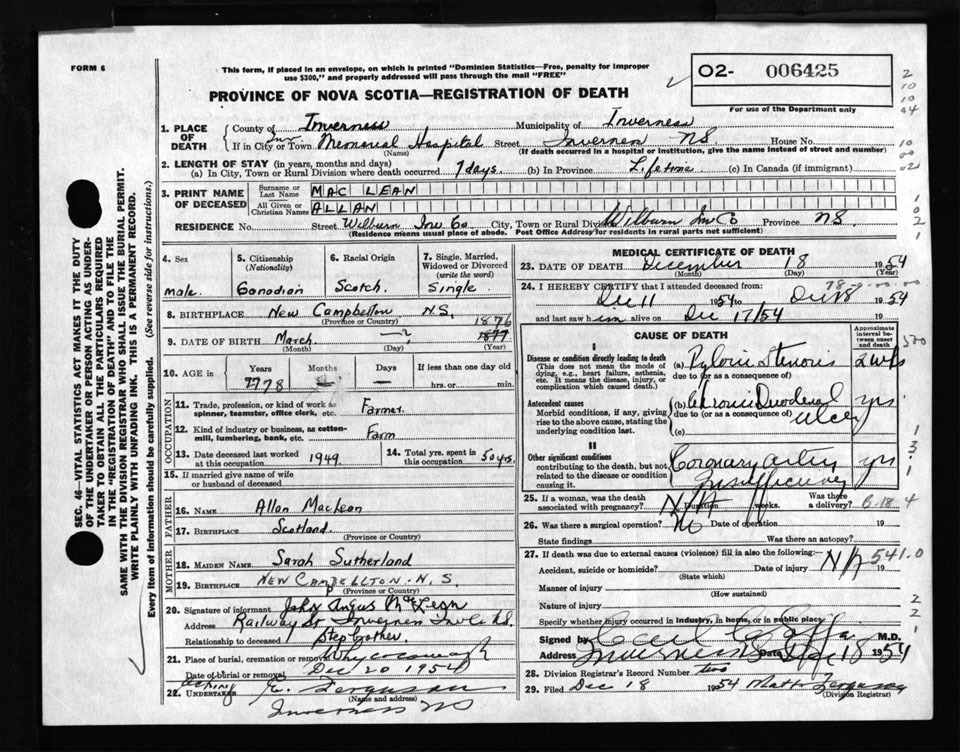 FORM 6
This form, if placed in an envelope, on which is printed "Dominion Statistics—Free, penalty for improper
use $300," and properly addressed will pass through the mail "FREE"
PROVINCE OF NOVA SCOTIA—REGISTRATION OF DEATH
O2- 006425
For use of the Department only
2
10
10
04
10
00
02
1. PLACE OF DEATH
County of Inverness Municipality of Inverness
If in City or Town Inv Memorial Hospital Street Inverness NS House No.
(Name) (If death occurred in a hospital or institution, give the name instead of street and number)
2. LENGTH OF STAY (in years, months and days)
(a) In City, Town or Rural Division where death occurred 7 days. (b) In Province Lifetime (c) In Canada (if immigrant)
3. PRINT NAME OF DECEASED
Surname or Last Name MAC LEAN
All Given or Christian Names ALLAN
RESIDENCE No. Street Wilburn Inv Co City, Town or Rural Division Wilburn Inv Co Province NS
(Residence means usual place of abode. Post Office Address for residents in rural parts not sufficient)
1
0
2
1
4. Sex
male
5. Citizenship
(Nationality)
Canadian
6. Racial Origin
Scotch
7. Single, Married, Widowed or Divorced
(write the word)
Single
8. BIRTHPLACE New Campbellton N.S.
(Province or Country)
1876
9. DATE OF BIRTH March —? 1877
(Month) (Day) (Year)
10. AGE in
Years Months Days If less than one day
78 — hrs. or min.
OCCUPATION
11. Trade, profession, or kind of work as spinner, teamster, office clerk, etc. Farmer
12. Kind of industry or business, as cotton-mill, lumbering, bank, etc. Farm
13. Date deceased last worked at this occupation 1949
14. Total yrs. spent in this occupation 50 yrs.
15. If married give name of wife or husband of deceased
FATHER
16. NAME Allan MacLean
17. BIRTHPLACE Scotland
(Province or Country)
MOTHER
18. MAIDEN NAME Sarah Sutherland
19. BIRTHPLACE NEW CAMPBELLTON - N.S.
(Province or Country)
20. Signature of informant John Angus McLean
Address Railway St Inverness Inv Co N.S.
Relationship to deceased Step brother
21. Place of burial, cremation or removal Whycocomagh
Date of burial or removal Dec 20 1954
Acting
22. UNDERTAKER E. Ferguson
(Name and address)
Inverness NS
MEDICAL CERTIFICATE OF DEATH
23. DATE OF DEATH December 18 1954
(Month) (Day) (Year)
24. I HEREBY CERTIFY that I attended deceased from:
Dec 11 1954 to Dec 18 1954
and last saw him alive on Dec 17/54
CAUSE OF DEATH
Approximate interval between onset and death
I
Disease or condition directly leading to death
(This does not mean the mode of dying, e.g., heart failure, asthenia, etc. It means the disease, injury, or complication which caused death.)
(a) Pyloric Stenosis 2 wks
due to (or as a consequence of)
Antecedent causes
Morbid conditions, if any, giving rise to the above cause, stating the underlying condition last.
(b) Chronic Duodenal ulcer yrs.
due to (or as a consequence of)
(c)
II
Other significant conditions
contributing to the death, but not related to the disease or condition causing it.
Coronary artery Insufficiency yrs
1
3
1
25. If a woman, was the death associated with pregnancy? N/A Duration weeks. Was there a delivery?
4
26. Was there a surgical operation? No Date of operation 19
State findings Was there an autopsy?
27. If death was due to external causes (violence) fill in also the following:
541.0
Accident, suicide or homicide? Date of injury N/A 19
(State which)
Manner of injury
(How sustained)
Nature of injury
2
2
1
Specify whether injury occurred in industry, in home, or in public place
Signed by M.D.
Address Inverness NS Date Dec 18 1954
28. Division Registrar's Record Number two
29. Filed Dec 18 1954 Matt Ferguson
(Division Registrar)
SEC. 46—VITAL STATISTICS ACT MAKES IT THE DUTY
OF THE UNDERTAKER OR PERSON ACTING AS UNDER-
TAKER TO OBTAIN ALL THE PARTICULARS REQUIRED
IN THE "REGISTRATION OF DEATH" AND TO FILE THE
SAME WITH THE DIVISION REGISTRAR WHO SHALL ISSUE THE BURIAL PERMIT.
WRITE PLAINLY WITH UNFADING INK. THIS IS A PERMANENT RECORD.
Every item of information should be carefully supplied. (See reverse side for instructions.)